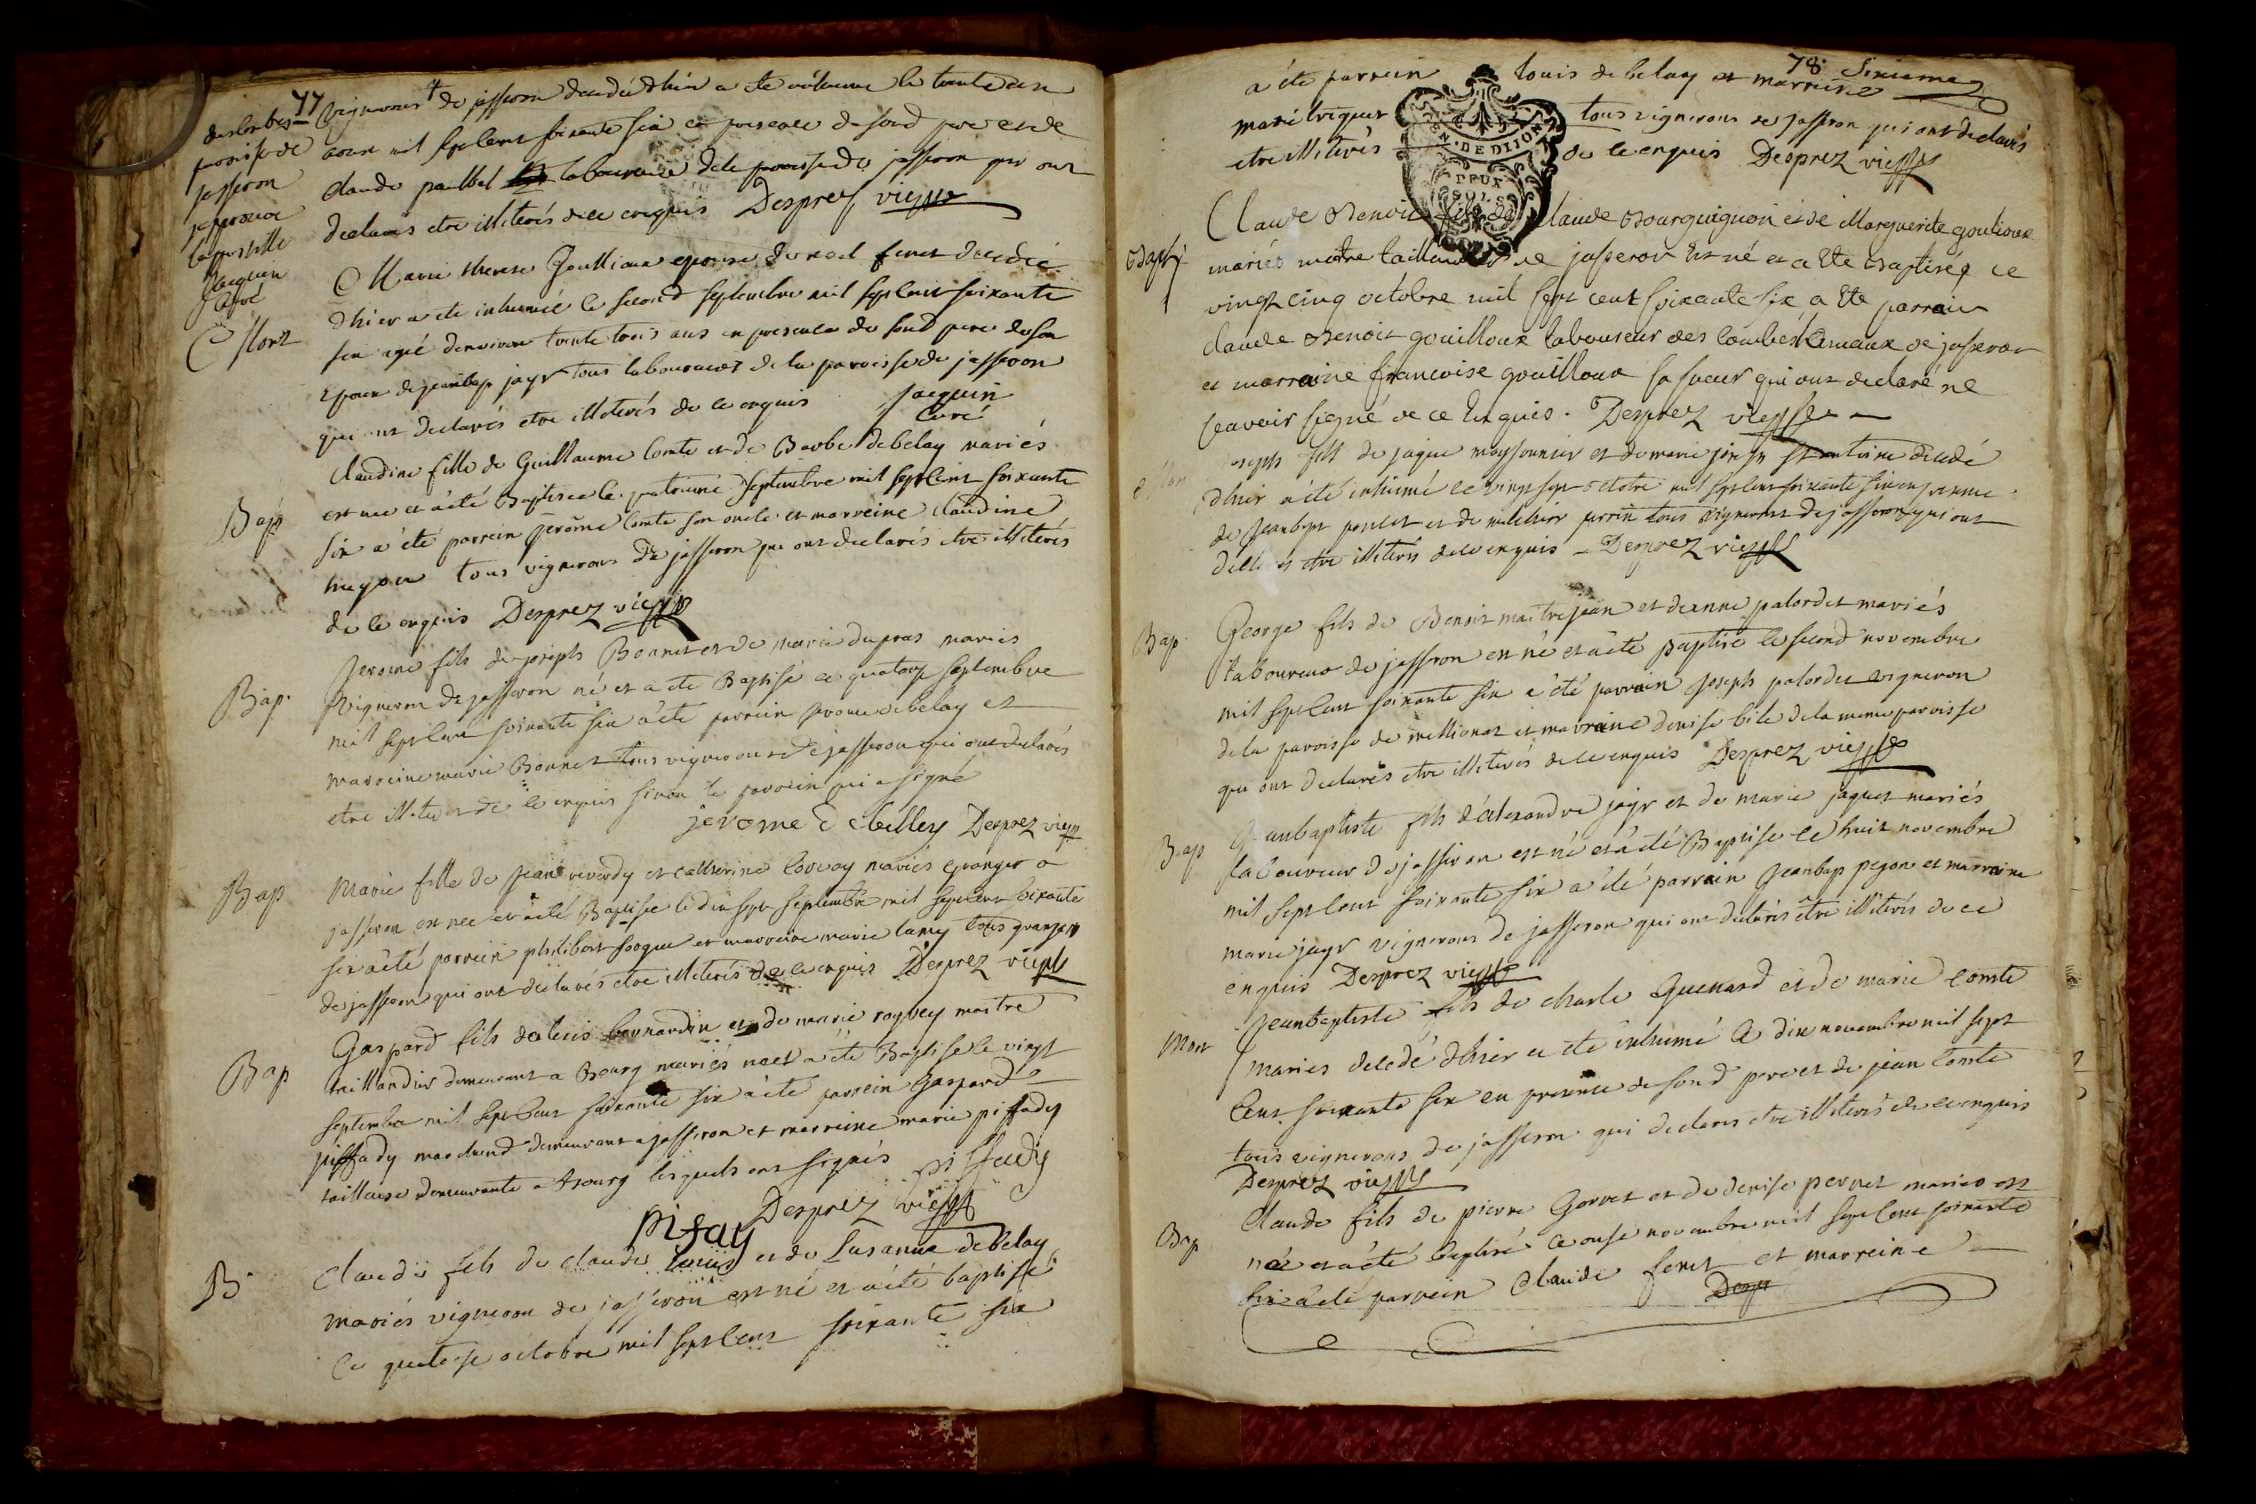 77
des combes
paroisse de
jasseron
japprouve
lapostille
Jacquin
Curé
vignerons de jasseron decedé dhier a été inhumé le trente un
aoust mil sept cent soixante six en presence de son d pere et de
claude paulbel laboureurs dela paroisse de jasseron qui ont
declarés etre illiterés de ce enquis Desprez vic
Mort
Marie therese Goullioux epouse de noel feret decedée
dhier a été inhumée le second septembre mil sept cent soixante
six agée denviron trente trois ans en presence de son d pere de son
epoux de jeanbap jayr tous laboureurs de la paroisse de jasseron
qui ont declarés etre illiterés de ce enquis Jacquin
Curé
Bap
Claudine fille de Guillaume Comte et de Barbe debelay mariés
est née et a été Baptisée le quatorze septembre mil sept cent soixante
six a été parrein jerôme Comte son oncle et marreine claudine
tous vignerons de jasseron qui ont declarés etre illiterés
de ce enquis Desprez vic
Bap
Jerome fils de joseph Bonnet et de marie dupras mariés
vigneron de jasseron né et a été Baptisé ce quatorze septembre
mil sept cent soixante six a été parrein jerome debelay et
marreine marie Bonnet tous vignerons de jasseron qui ont declarés
etre illiterés de ce enquis sinon le parrein qui a signé
jerome Desprez vic
Bap
Marie fille de jean reverdy et catherine mariés granger a
jasseron est née et a été Baptisée le dix sept septembre mil sept cent soixante
six a été parrein philibert et marreine marie lamy tous grangers
de jasseron qui ont declarés etre illiterés de ce enquis Desprez vic
Bap
Gaspard fils de louis bernardin et de marie maitre
taillandier demeurant a Bourg mariés né et a été Baptisé le vingt
septembre mil sept cent soixante six a été parrein Gaspard
piffady marchand demeurant a jasseron et marreine marie piffady
tailleuse demeurante a Bourg lesquels ont signés piffady
pifay Desprez vic
B
Claude fils de claude louis et de Susanne debelay
mariés vigneron de jasseron est né et a été baptisé
le quatorse octobre mil sept cent soixante six
78 Sixieme
a été parrein louis debelay et marreine
marie tous vignerons de jasseron qui ont declarés
etre illiterés de ce enquis Desprez vic
GEN. DE DIJON
DEUX
SOLS
Bapt
Claude Benoit fils de Claude Bourguignon et de Marguerite goulioux
mariés maitre tailleur de jasseron est né et a été Baptisé ce
vingt cinq octobre mil sept cent soixante six a été parrain
claude Benoit gouilloux laboureur des combes hameaux de jasseron
et marraine francoise gouilloux sa soeur qui ont declaré ne
scavoir signé de ce Enquis. Desprez vic
Joseph fils de jaque et de marie decedé
dhier a été inhumé le vingt sept octobre mil sept cent soixante six en presence
de jeanbapt poncet et de melchior perrin tous vignerons de jasseron qui ont
declarés etre illiterés de ce enquis Desprez vic
Bap
George fils de Benoit maitrejean et deanne palordet mariés
laboureur de jasseron est né et a été Baptisé le second novembre
mil sept cent soixante six a été parrain joseph palordet vigneron
dela paroisse de meillionat et marraine denise bile dela meme paroisse
qui ont declarés etre illiterés de ce enquis Desprez vic
Bap
Jeanbaptiste fils d'alexandre jayr et de marie jaquet mariés
laboureur de jasseron est né et a été Baptisé le huit novembre
mil sept cent soixante six a été parrain Jeanbap pegon et marraine
marie jayr vignerons de jasseron qui ont declarés être illiterés de ce
enquis Desprez vic
Mort
Jeanbaptiste fils de charle Guenard et de marie comte
mariés decedé dhier a été inhumé le dix novembre mil sept
cent soixante six en presence de son d pere et de jean Comte
tous vignerons de jasseron qui declares etre illiterés de ce enquis
Desprez vic
Bap
Claude fils de pierre Gorret et de denise pernet mariés est
né et a été baptisé le onse novembre mil sept cent soixante
six a été parrein Claude feret et marreine
Despr